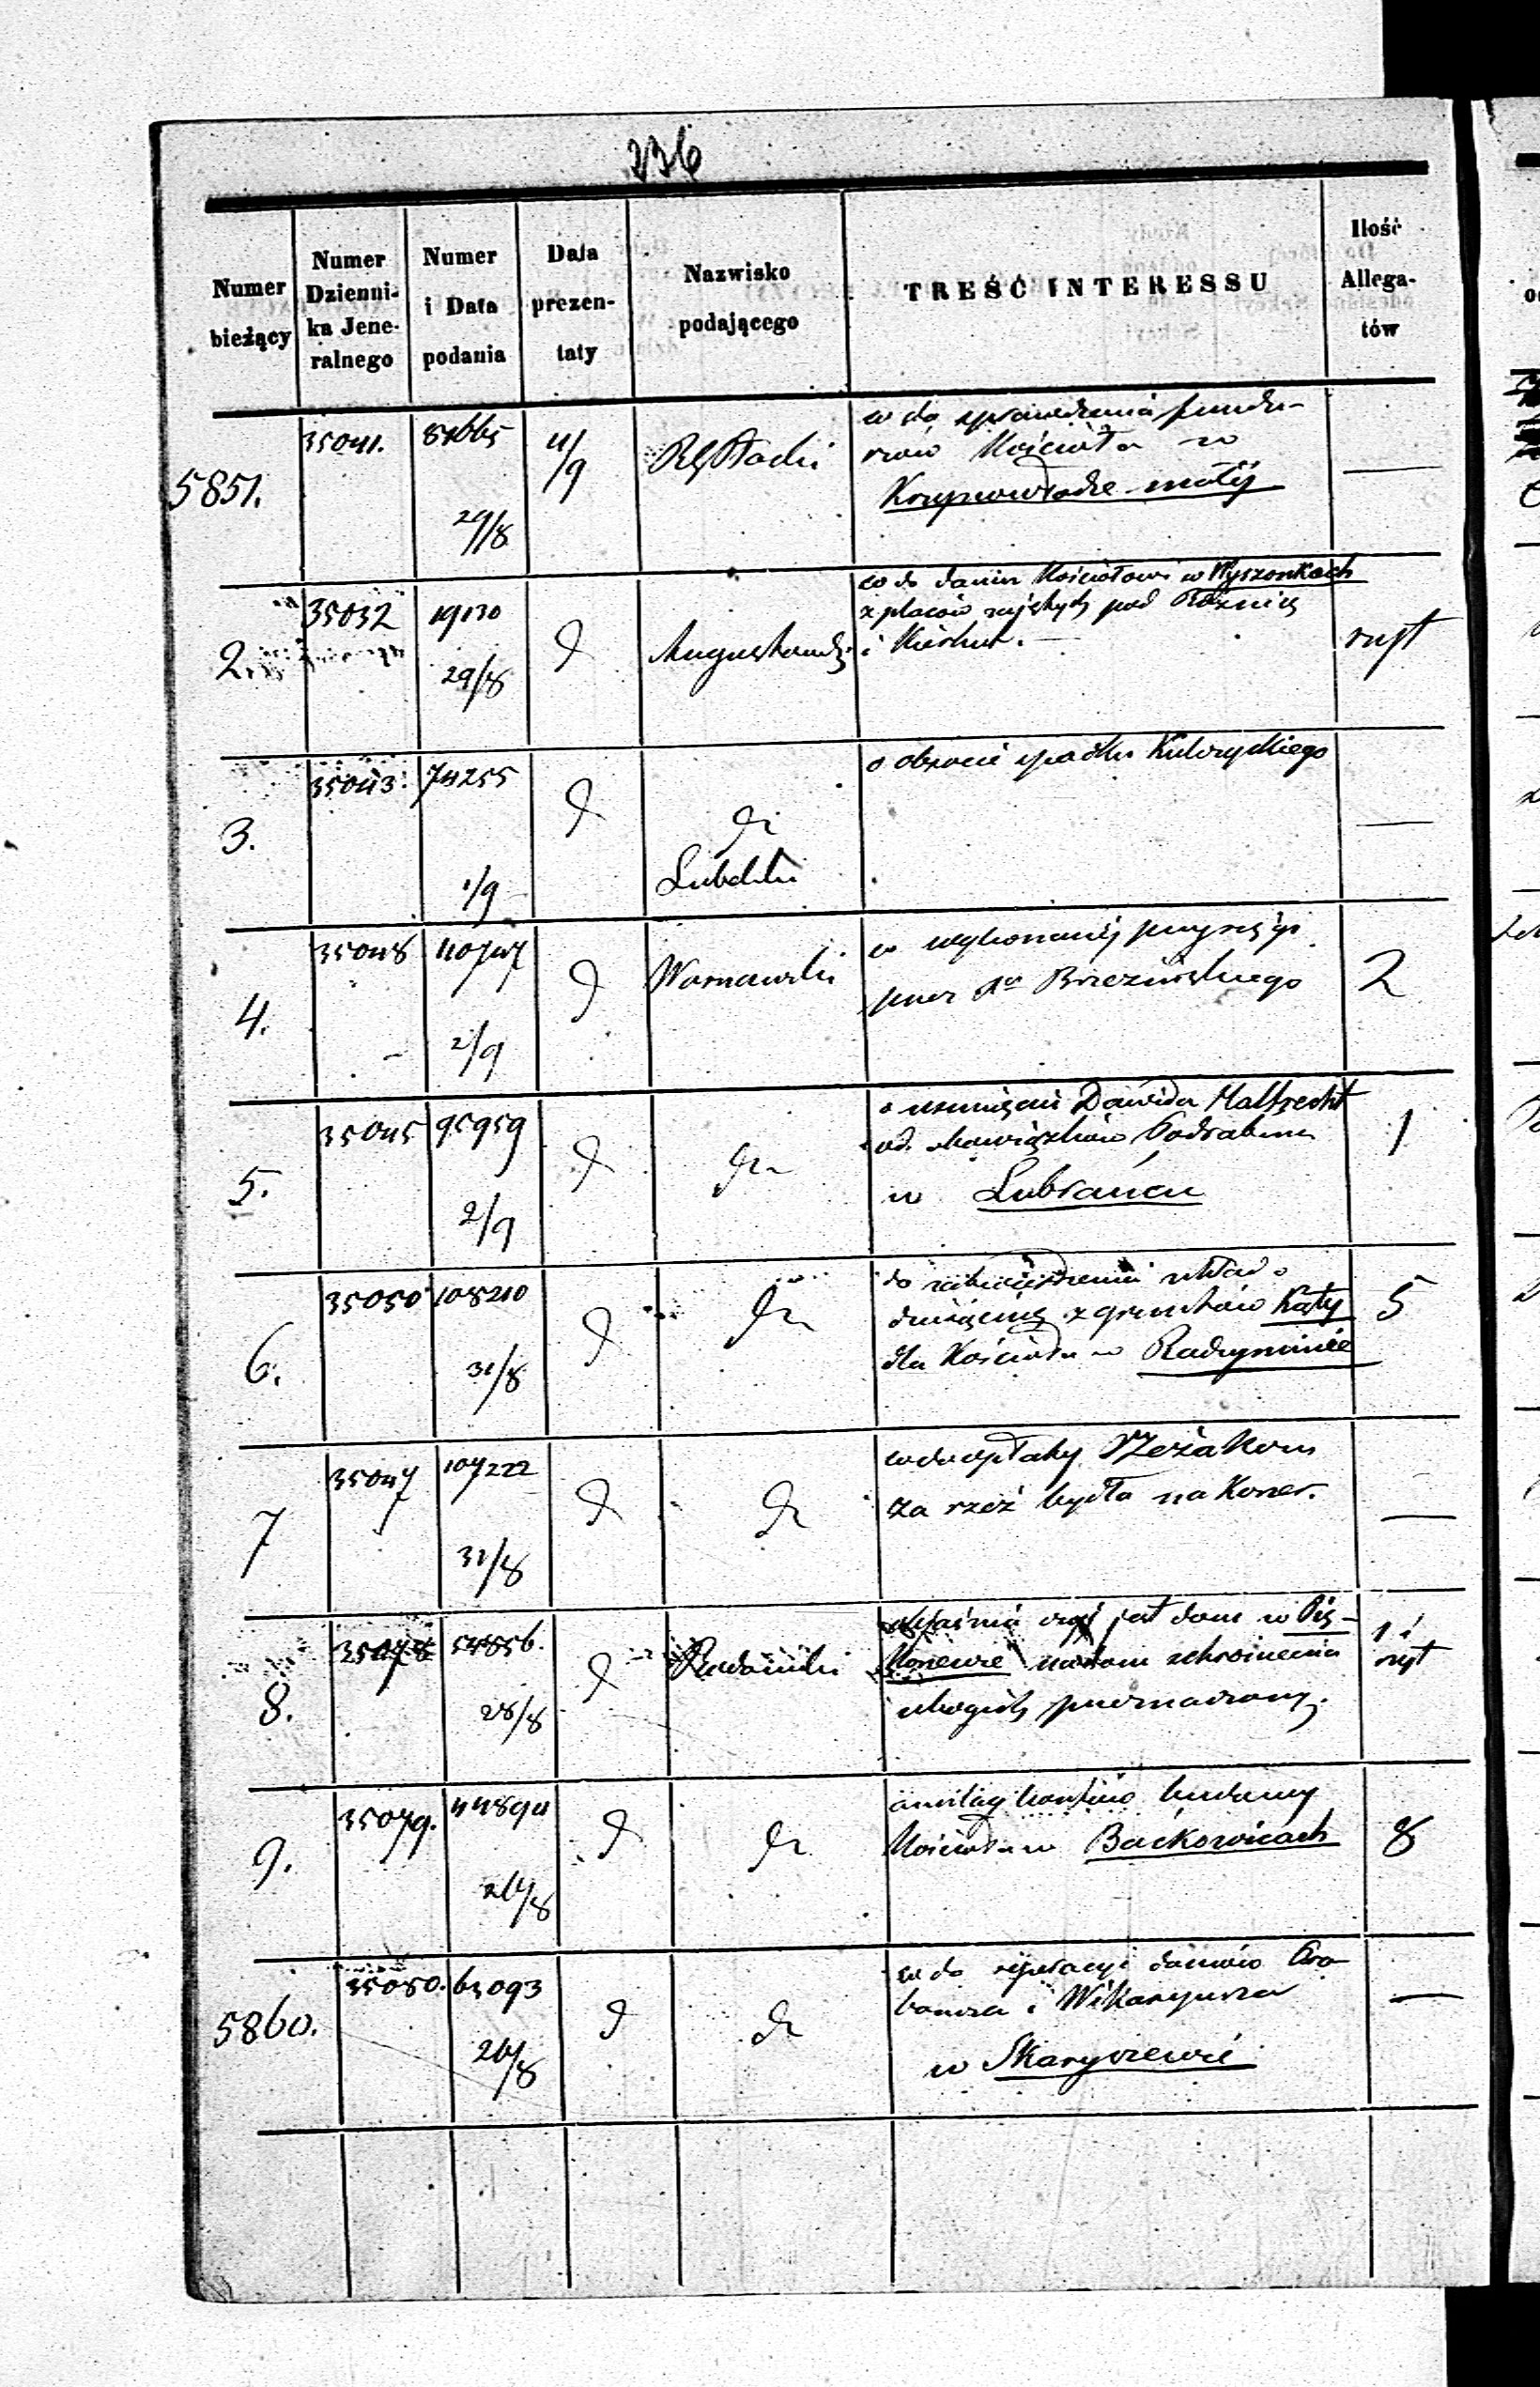 236
Numer bieżący
Numer Dzienni- ka Jene- ralnego
Numer i Data podania
Data prezen- taty
Nazwisko podającego
TREŚĆ INTERESSU
Ilość Allega- tów
5851. 35041. 29/8 4/9 Rg Płocki
w do sprawdzenia fundu-
szów Kościoła w
małÿ —
2. 35032 19130 29/8 d Augustowski
w do danin Kościołowi w Wyszonkach
z placów zajętych pod
i Kirkut. —
3. 35043. 74255 1/9 d dr Lubelski
o obrocie spadku Kulczyckiego —
4. 35048 110747 2/9 d Warszawski
o wykonanej przysiędze
przez Brzezińskiego 2
5. 35045 95959 2/9 d dr
o usunięcie Dawida Halbrecht
od obowiązków Podrabina
w Lubrańcu 1
6. 35050 108210 31/8 d dr
do zatwierdzenia układ o
dziesięcinę z gruntów Kąty
dla Kościoła w Radzyminie 5
7 35047 107222 31/8 d dr
w do opłaty Rzeżakom
za rzeź bydła na Koszer. —
8. 35078 54856. 28/8 d Radomski
jest dom w Pię-
schronienia
ubogich przeznaczony. 1 i
9. 35079. 44894 26/8 d dr
budowy
Kościoła w Backowicach 8
5860. 35080. 63093 26/8 d dr
w do reperacyi domów Pro-
boszcza i Wikaryusza
w Skaryszewie —